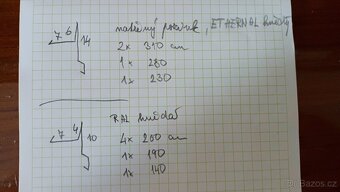 7 6 14
natřený pozink, ETHERNAL hnědý
2x 310 cm
1x 280
1x 230
RAL hnědá
7 4 10
4x 200 cm
1x 190
1x 140
Bazos.cz